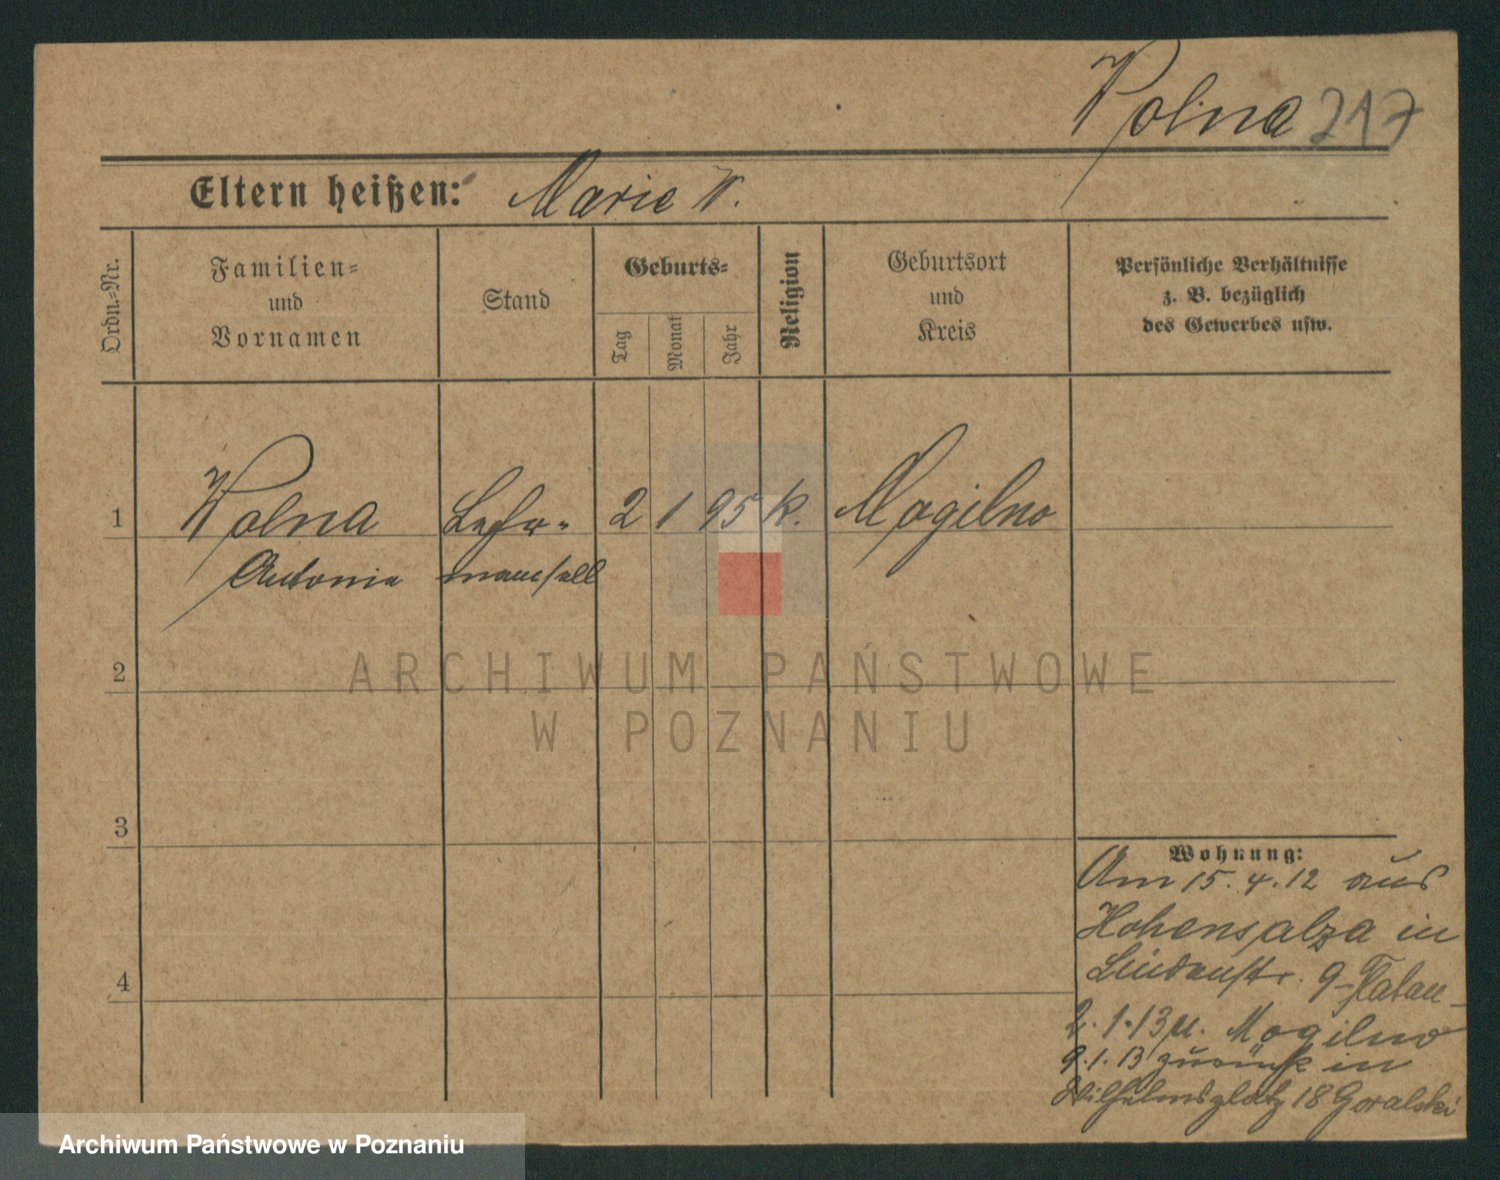 Wolna 217
Eltern heißen: Marie W.
Ordn.-Nr.
Familien-
und
Vornamen
Stand
Geburts-
Tag
Monat
Jahr
Religion
Geburtsort
und
Kreis
Persönliche Verhältnisse
z. B. bezüglich
des Gewerbes usw.
1 Wolna Lehr- 2 1 95 k. Mogilno
Antonie mamsell
2
3
4
ARCHIWUM PAŃSTWOWE
W POZNANIU
Wohnung:
Am 15.4.12 aus
Hohensalza in
Lindenstr. 9
2.1.13 n. Mogilno
9.1.13 zurück in
Wilhelmsplatz 18 Goralski
Archiwum Państwowe w Poznaniu